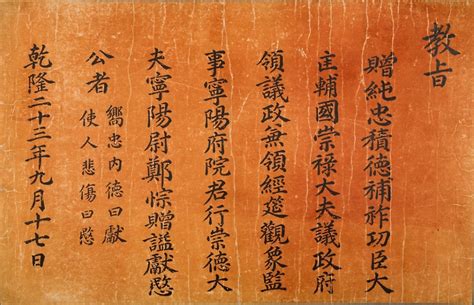 教旨
贈純忠積德補祚功臣大
匡輔國崇祿大夫議政府
領議政兼領經筵觀象監
事寧陽府院君行崇德大
夫寧陽尉鄭悰贈諡獻愍
公者
嚮忠內德曰獻
使人悲傷曰愍
乾隆二十三年九月十七日